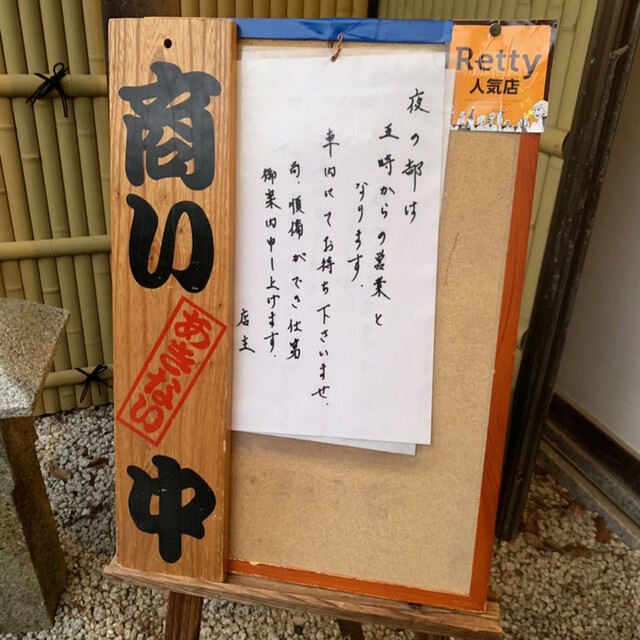 商い中
あきない
Retty
人気店
夜の部は
五時からの営業と
なります.
車内にてお待ち下さいませ.
尚、順備ができ仕第
御案内申し上げます.
店主